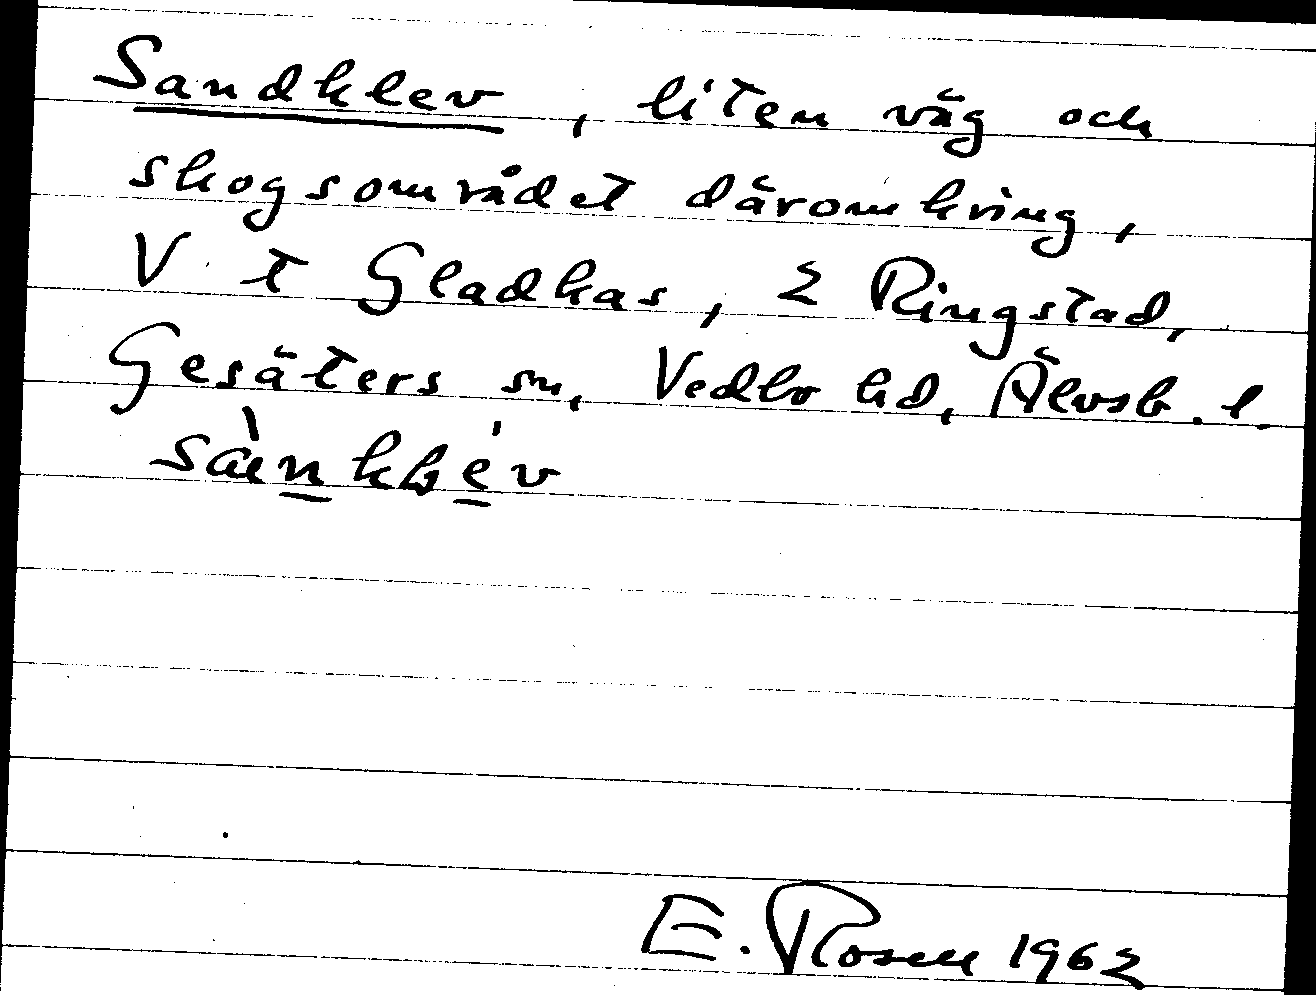 Sandklev, liten väg och
skogsområdet däromkring,
V t Gladkas, 2 Ringstad,
Gesäters sn, Vedbo hd, Älvsb. l.
E. Rosen 1962